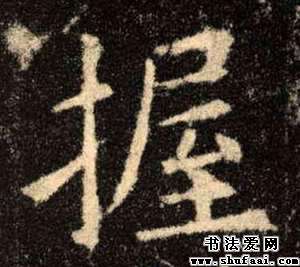 握
书法爱网
www.shufaai.com